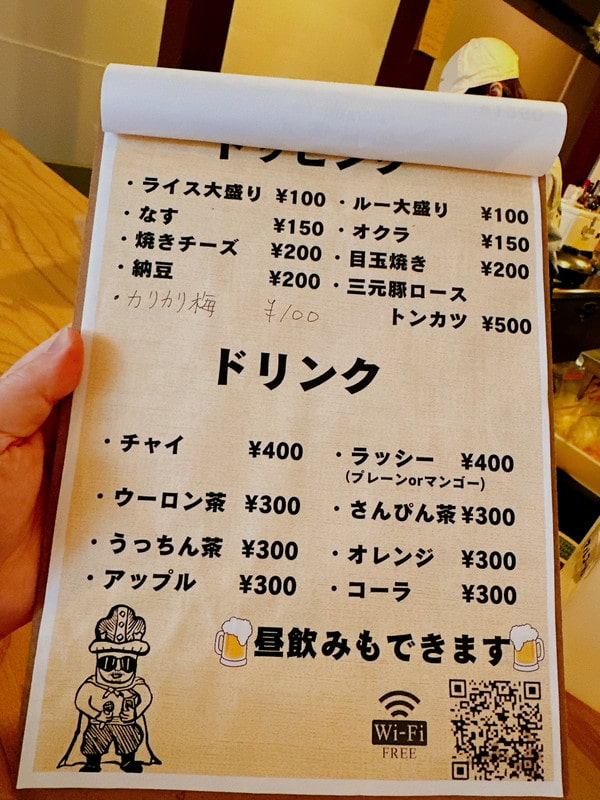 トッピング
・ライス大盛り ¥100
・なす ¥150
・焼きチーズ ¥200
・納豆 ¥200
・カリカリ梅 ¥100
・ルー大盛り ¥100
・オクラ ¥150
・目玉焼き ¥200
・三元豚ロース
トンカツ ¥500
ドリンク
・チャイ ¥400
・ラッシー ¥400
(プレーンorマンゴー)
・ウーロン茶 ¥300
・さんぴん茶 ¥300
・うっちん茶 ¥300
・オレンジ ¥300
・アップル ¥300
・コーラ ¥300
昼飲みもできます
Wi-Fi
FREE